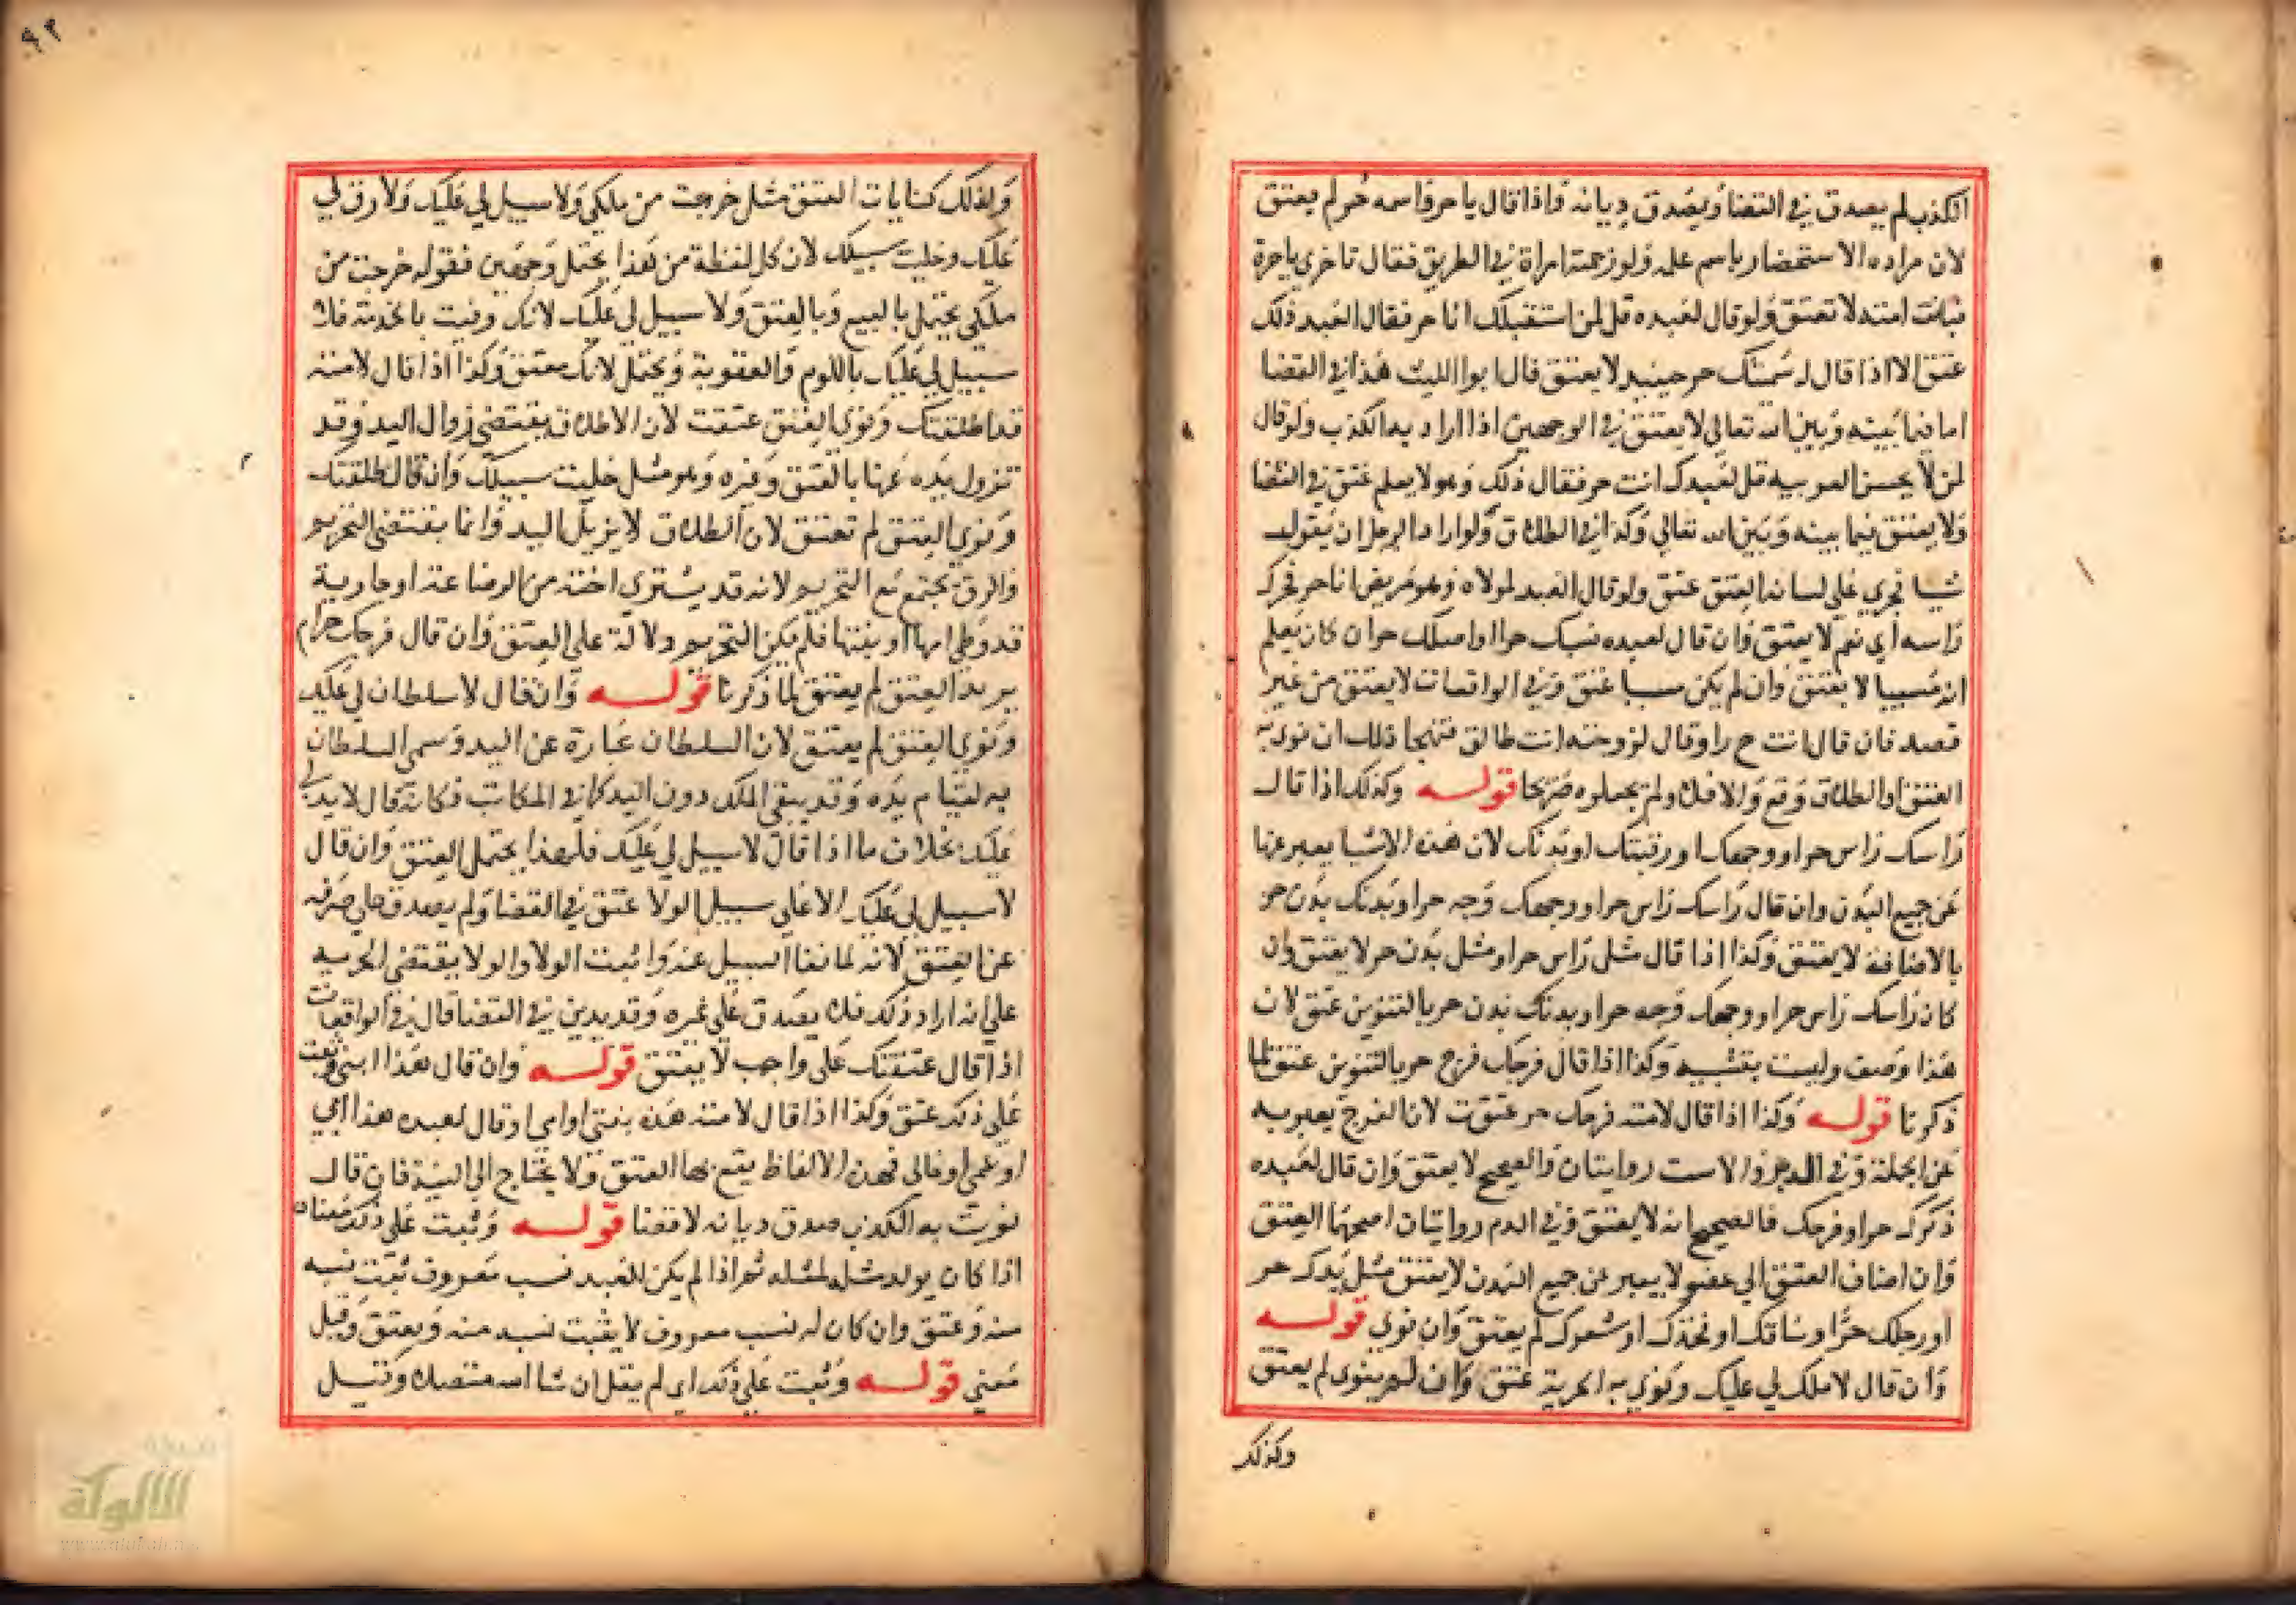 الكذب لم يصدق في القضا ويصدق ديانة واذا قال يا حر واسمه حر لم يعتق
لان مراده الاستحضار باسم علمه ولو زحمته امراة في الطريق فقال تاخري يا حرة
فبانت امته لا تعتق ولو قال لعبده قل لمن استقبلك انا حر فقال العبد ذلك
عتق الا اذا قال له سميتك حر حينيد لا يعتق قال ابو الليث هذا في القضا
اما فيما بينه وبين الله تعالي لا يعتق في الوجهين اذا اراد به الكذب ولو قال
لمن لا يحسن العربيه قل لعبدك انت حر فقال ذلك وهو لا يعلم عتق في القضا
ولا يعتق فيما بينه وبين الله تعالي وكذا في الطلاق ولو اراد الرجل ان يقول
شيا فجري علي لسانه العتق عتق ولو قال العبد لمولاه وهو مريض انا حر فحرك
راسه اي نعم لا يعتق وان قال لعبده نسبك حر او اصلك حر ان كان يعلم
انه مسبيا لا يعتق وان لم يكن سبيا عتق وفي الواقعات لا يعتق من غير
قصد فان قال انت ح ر او قال لزوجته انت طالق فتهجا ذلك ان نوي به
العتق او الطلاق وقع والا فلا ولم يجعلوه صريحا قوله وكذلك اذا قال
راسك راس حر او وجهك او رقبتك او بدنك لان هذه الاشيا يعبر عنها
عن جميع البدن وان قال راسك راس حر او وجهك وجه حر او بدنك بدن حر
بالاضافة لا يعتق وكذا اذا قال مثل راس حر او مثل بدن حر لا يعتق وان
كان راسك راس حر او وجهك وجه حر او بدنك بدن حر بالتنوين عتق لان
هذا وصف وليست بتشبيه وكذا اذا قال فرجك فرج حر بالتنوين عتق لما
ذكرنا قوله وكذا اذا قال لامته فرجك حر عتقت لان الفرج يعبر به
عن الجملة وفي الدبر والاست روايتان والصحيح لا يعتق وان قال لعبده
ذكرك حر او فرجك فالصحيح انه لا يعتق وفي الدم روايتان اصحهما العتق
وان اضاف العتق الي عضو لا يعبر عن جميع البدن لا يعتق مثل يدك حر
او رجلك حر او ساقك او فخذك او شعرك لم يعتق وان نوي قوله
وان قال لا ملك لي عليك ونوي به الحرية عتق وان لم ينوي لم يعتق
وكذلك
٩٢
وكذلك كنايات العتق مثل خرجت من ملكي ولا سبيل لي عليك ولا رق لي
عليك وخليت سبيلك لان كل لفظة من هذا يحتمل وجهين فقوله خرجت من
ملكي يحتمل بالبيع وبالعتق ولا سبيل لي عليك لانك وفيت بالخدمة فلا
سبيل لي عليك باللوم والعقوبة ويحتمل لانك معتق وكذا اذا قال لامته
قد اطلقتك ونوي العتق عتقت لان الاطلاق يقتضي زوال اليد وقد
تزول يده عنها بالعتق وغيره وهو مثل خليت سبيلك وان قال طلقتك
ونوي العتق لم تعتق لان الطلاق لا يزيل اليد وانما يقتضي التحريم
والرق يجتمع مع التحريم لانه قد يشتري اخته من الرضاعة او جارية
قد وطي امها او بنتها فلم يكن التحريم دلالة علي العتق وان قال فرجك حرام
يريد العتق لم يعتق لما ذكرنا قوله وان قال لا سلطان لي عليك
ونوي العتق لم يعتق لان السلطان عبارة عن اليد وسمي السلطان
به لقيام يده وقد يبقي الملك دون اليد كما في المكاتب فكانه قال لا يد لي
عليك بخلاف ما اذا قال لا سبيل لي عليك فلهذا يحتمل العتق وان قال
لا سبيل لي عليك الا علي سبيل الولا عتق في القضا ولم يصدق علي صرفه
عن العتق لانه لما نفا السبيل عنه واثبت الولا والولا يقتضي الحريه
علي انه اراد ذلك فلا يصدق علي غيره وقد يدين في القضا قال في الواقعات
اذا قال عتقك علي واجب لا يعتق قوله وان قال هذا ابني وثبت
علي ذلك عتق وكذا اذا قال لامته هذه بنتي او امي او قال لعبده هذا ابي
او عمي او خالي فهذه الالفاظ يقع بها العتق ولا يحتاج الي النية فان قال
نويت به الكذب صدق ديانه لا قضا قوله وثبت علي ذلك معناه
اذا كان يولد مثله لمثله ثم اذا لم يكن للعبد نسب معروف ثبت نسبه
منه وعتق وان كان له نسب معروف لا يثبت نسبه منه ويعتق وقيل
معني قوله وثبت علي ذلك اي لم يقل ان شا الله متصلا وقيل
الألوكة